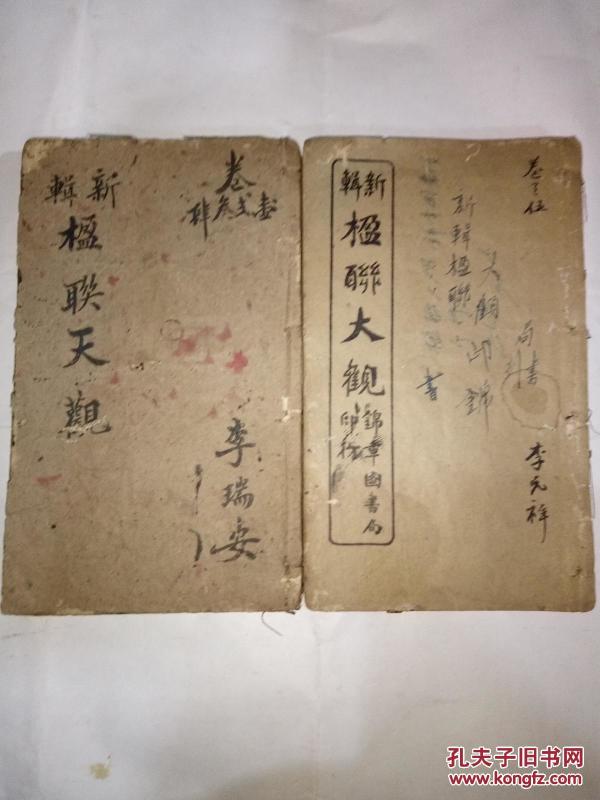 新輯
楹聯天觀
卷
壹弍叁
李瑞安
新輯
楹聯大觀
錦章圖書局
印行
新輯楹聯
大觀印錦
書
局書
李元祥
孔夫子旧书网
www.kongfz.com